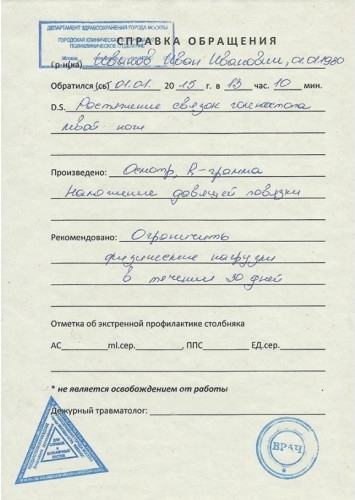 ДЕПАРТАМЕНТ ЗДРАВООХРАНЕНИЯ ГОРОДА МОСКВЫ
ГОРОДСКАЯ КЛИНИЧЕСКАЯ
ПОЛИКЛИНИЧЕСКОЕ ОТДЕЛЕНИЕ
СПРАВКА ОБРАЩЕНИЯ
Гр-н(ка) Иванов Иван Иванович, 01.01.1980
Обратился (сь) 01.01. 2015 г. в 13 час. 10 мин.
D.S. Растяжение связок голеностопа
левой ноги
Произведено: Осмотр, R-грамма
Наложение давящей повязки
Рекомендовано: Ограничить
физические нагрузки
в течении 30 дней
Отметка об экстренной профилактике столбняка
АС_________ml.сер.__________, ППС__________ЕД.сер.________
* не является освобождением от работы
Дежурный травматолог:
ДЛЯ
СПРАВОК И
БОЛЬНИЧНЫХ
ЛИСТОВ
ВРАЧ